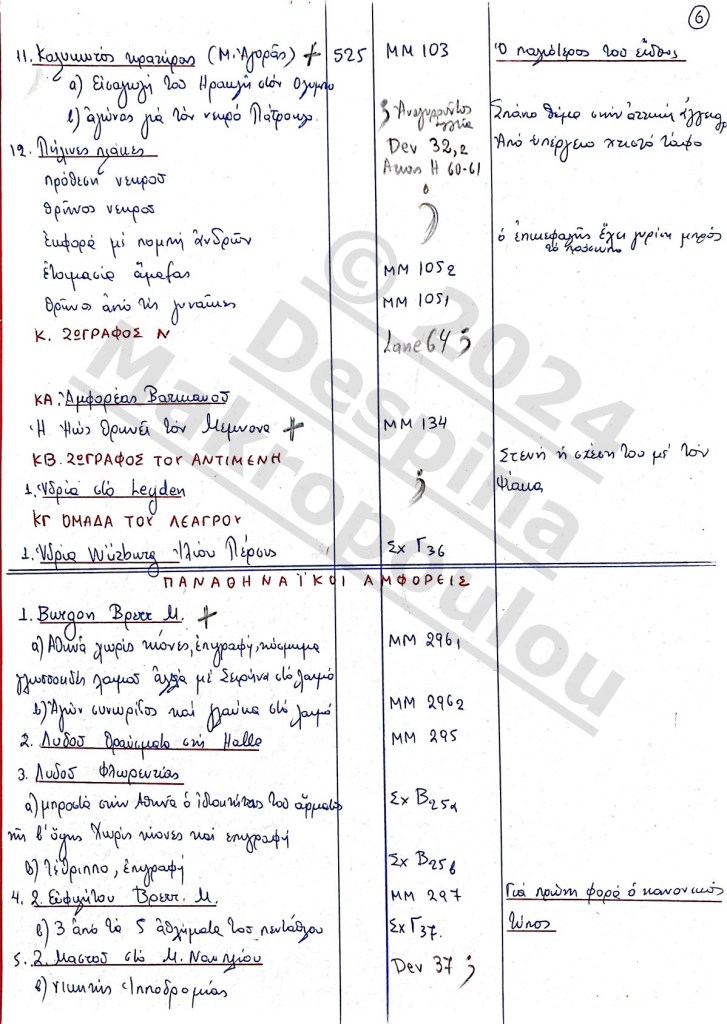 6
11. Καλυκωτός κρατήρας (Μ. Αγοράς) + 525 ΜΜ 103 Ὁ παλιότερος του εἴδους
α) Εισαγωγή του Ηρακλή στόν Ολυμπο
β) ἀγώνας γιά τον νεκρό Πάτροκλο. ; Αναγυρούντος Σπάνιο θέμα στην ἀττική ἀγγειογρ
12. Πήλινες πλάκες Dev 32,2 Από ὑπέργειο κτιστό τάφο
πρόθεση νεκροῦ Η 60-61
θρῆνος νεκροῦ ;
ἐκφορά μέ πομπή ἀνδρῶν ὁ ἐπικεφαλής ἔχει γυρίσει μπρός
το πρόσωπο
ἑτοιμασία ἅμαξας ΜΜ 105₂
θρῆνος ἀπό τίς γυναῖκες ΜΜ 105₁
Κ. ΖΩΓΡΑΦΟΣ Ν Lane 64 ;
ΚΑ. Ἀμφορέας Βατικανοῦ
Ἡ Ηώς θρηνεῖ τόν Μέμνονα + ΜΜ 134
ΚΒ. ΖΩΓΡΑΦΟΣ ΤΟΥ ΑΝΤΙΜΕΝΗ Στενή ἡ σχέση του μέ τόν
1. Ὑδρία στό Leyden ; Ψίακα
ΚΓ ΟΜΑΔΑ ΤΟΥ ΛΕΑΓΡΟΥ
1. Ὑδρία Würzburg Ἰλίου Πέρσις Σχ Γ36
ΠΑΝΑΘΗΝΑΪΚΟΙ ΑΜΦΟΡΕΙΣ
1. Burgon Βρεττ. Μ. +
α) Ἀθηνά χωρίς κίονες, ἐπιγραφή, κόσμημα ΜΜ 296₁
γλωσσοειδές λαιμοῦ ἀλλά μέ Σειρήνα στό λαιμό
β) Ἀγών συνωρίδος καί γλαύκα στό λαιμό ΜΜ 296₂
2. Λυδοῦ θραύσματα στή Halle ΜΜ 295
3. Λυδοῦ Φλωρεντίας
α) μπροστά στην Αθηνα ὁ ἰδιοκτήτης του ἅρματος Σχ Β25α
τῆς β' ὄψης Χωρίς κίονες καί επιγραφή
β) τέθριππο, ἐπιγραφή Σχ Β25β
4. Ζ. Εὐφιλήτου Βρεττ. Μ. ΜΜ 297 Γιά πρώτη φορά ὁ κανονικός
β) 3 ἀπό τά 5 ἀθλήματα του πεντάθλου Σχ Γ37. τύπος
5. Ζ. Μαστοῦ στό Μ. Ναυπλίου Dev 37 ;
β) νικητής Ἱπποδρομίας
© 2024
Despina
Makropoulou